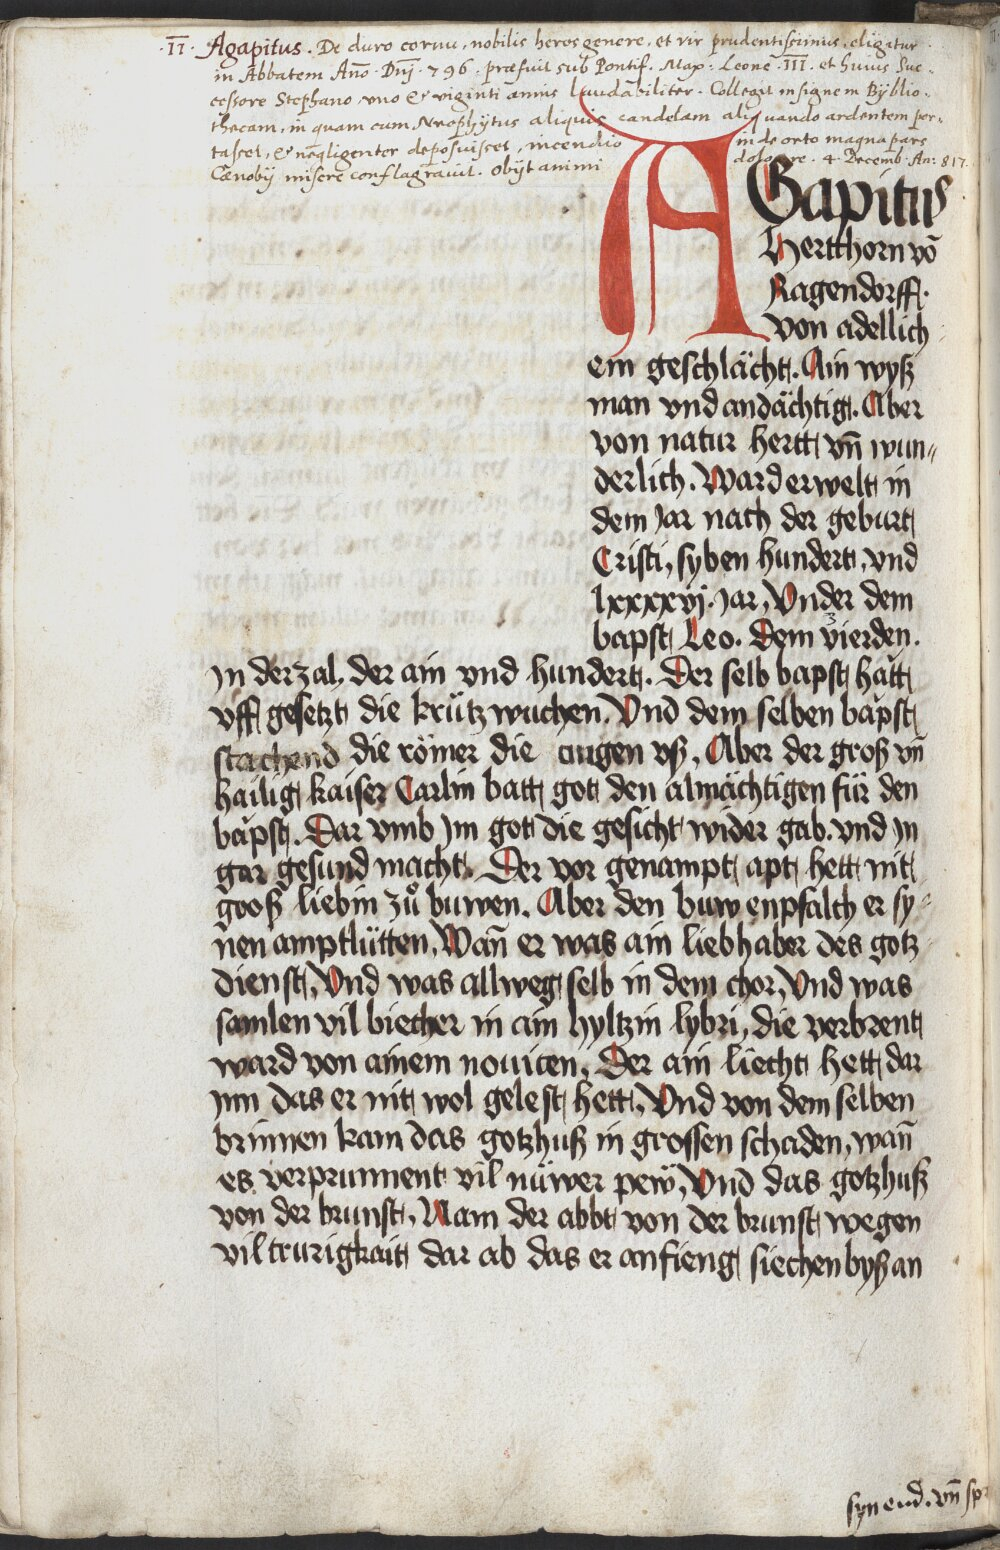 ·II· Agapitus. De duro cornu, nobilis heros genere, et vir prudentissimus, eligitur
in Abbatem Año Dnj 796. præfuit sub Pontif. Max: Leone III. et huius Suc-
cessore Stephano, vno & viginti annis laudabiliter. Collegit insignem Byblio-
thecam, in quam cum Neophytus aliquis candelam aliquando ardentem por-
tasset, & negligenter deposuisset, incendio inde orto magna pars
Cœnobij misere conflagravit. Obijt animi dolore. 4. Decemb. An: 817.
AGapitus
Hertthorn võ
Ragendorff.
von adellich
em geschlächt. Ain wyß
man vnd andächtig. Aber
von natur hertt vñ wun„
derlich. Ward erwelt in
dem Jar nach der geburt
Cristi, syben hundert, vnd
lxxxxvj. Jar, Vnder dem
3
bapst Leo. Dem vierden.
Jn der zal, der ain vnd hundert. Der selb bapst hätt
vff gesetzt die krütz wuchen. Vnd dem selben bäpst
stachend die römer die ougen vß, Aber der groß vñ
hailig kaiser Carlin batt got den almächtigen für den
bäpst. Dar vmb Jm got die gesicht wider gab. vnd Jn
gar gesund macht. Der vor genampt apt hett nit
grooß liebin zů buwen. Aber den buw enpfalch er sy-
nen amptlütten, Wañ er was ain liebhaber des gotz
dienst, Vnd was allweg selb in dem chor, Vnd was
samlen vil biecher in ain hyltzin lybri, die verbrent
ward von ainem nouicen, Der ain liecht hett dar
Jnn das er nit wol gelest hett, Vnd von dem selben
brinnen kam das gotzhuß in grossen schaden, wañ
es verprunnent vil nüwer pew, Vnd das gotzhuß
von der brunst, Nam der abbt von der brunst wegen
vil trurigkait dar ab das er anfieng siechen byß an
syn end. vñ